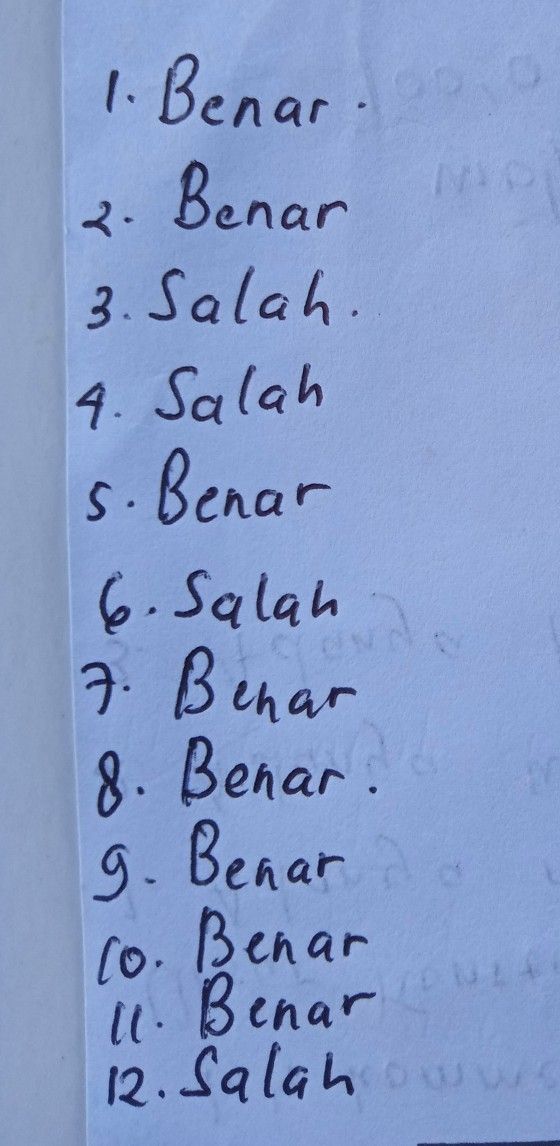 1. Benar.
2. Benar
3. Salah.
4. Salah
5. Benar
6. Salah
7. Benar
8. Benar.
9. Benar
10. Benar
11. Benar
12. Salah